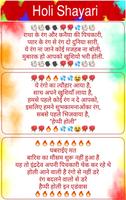 Holi Shayari
राधा के रंग और कन्हैया की पिचकारी,
प्यार के रंग से रंग दो दुनिया सारी,
ये रंग ना जाने कोई मजहब ना बोली,
मुबारक हो आपको खुशियों भरी होली.
ये रंगो का त्यौहार आया है,
साथ अपने खुशियाँ लाया है,
हमसे पहले कोई रंग न दे आपको,
इसलिए हमने शुभकामनाओं का रंग,
सबसे पहले भिजवाया है,
"हैप्पी होली"
घबराईए मत
बारिस का मौसम शुरू नहीं हुआ है
यह तो इंद्रदेव अपनी पिचकारी चेक कर रहे है
होली आने वाली है रंगो से नहीं डरे
रंग बदलने वालो से डरे
हैप्पी होली इन एडवांस